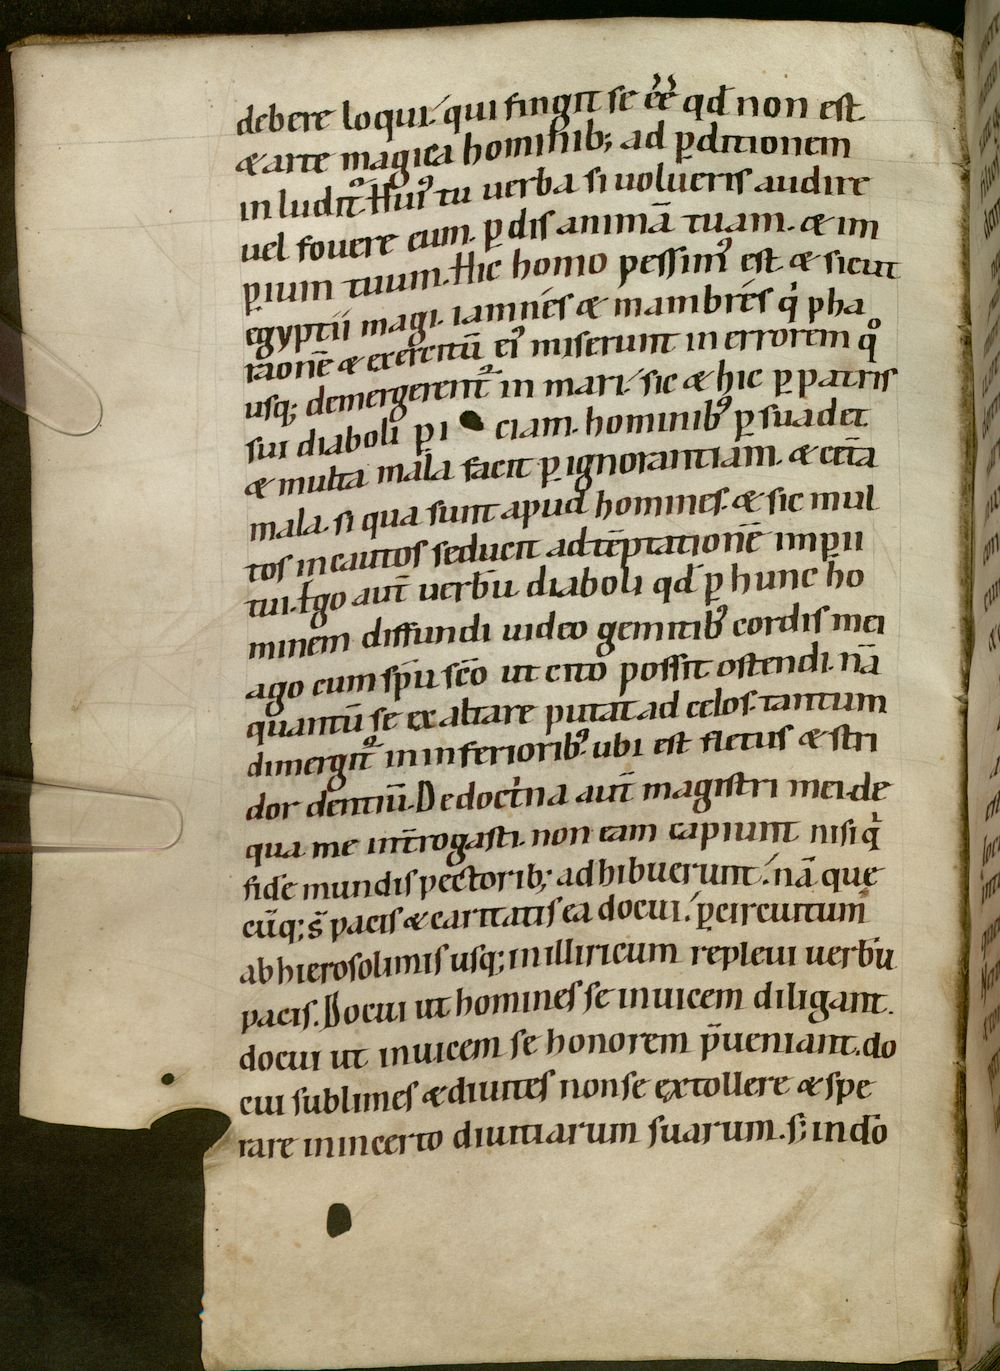 debere loqui. qui fingit se ēē qđ non est.
& arte magica hominib; ad ꝑditionem
inludit᷒. Hui᷒ tu uerba si uolueris audire
uel fouere eum. ꝑdis animā tuam. & im
ꝑium tuum. Hic homo pessim᷒ est. & sicut
egyptii magi. iamnes & mambres q̇ pha
raonē & exercitū ei᷒ miserunt in errorem q°
usq; demergerent᷒ in mari. sic & hic ꝑ patris
sui diaboli ꝑi ciam. hominib᷒ ꝑsuadet.
& multa mala facit ꝑ ignorantiam. & cet̄a
mala. si qua sunt apud homines. & sic mul
tos incautos seducit ad tēptationē imꝑii
tui. Ego aut̄ uerbū diaboli qđ ꝑ hunc ho
minem diffundi uideo gemitib᷒ cordis mei
ago cum sp̄u sc̄o ut cito possit ostendi. nā
quantū se exaltare putat ad celos. tantum
dimergit᷒ in inferiorib᷒. ubi est fletus & stri
dor dentiū. De doct̍na aut̄ magistri mei. de
qua me int̄rogasti. non eam capiunt nisi q̇
fide mundis pectorib; adhibuerunt. nā que
cūq; s̄ pacis & caritatis ea docui. ꝑ circuitum
ab hierosolimis usq; in illiricum repleui uerbū
pacis. Docui ut homines se inuicem diligant.
docui ut inuicem se honorem p̄ueniant. do
cui sublimes & diuites non se extollere & spe
rare in incerto diuitiarum suarum. s; in dō